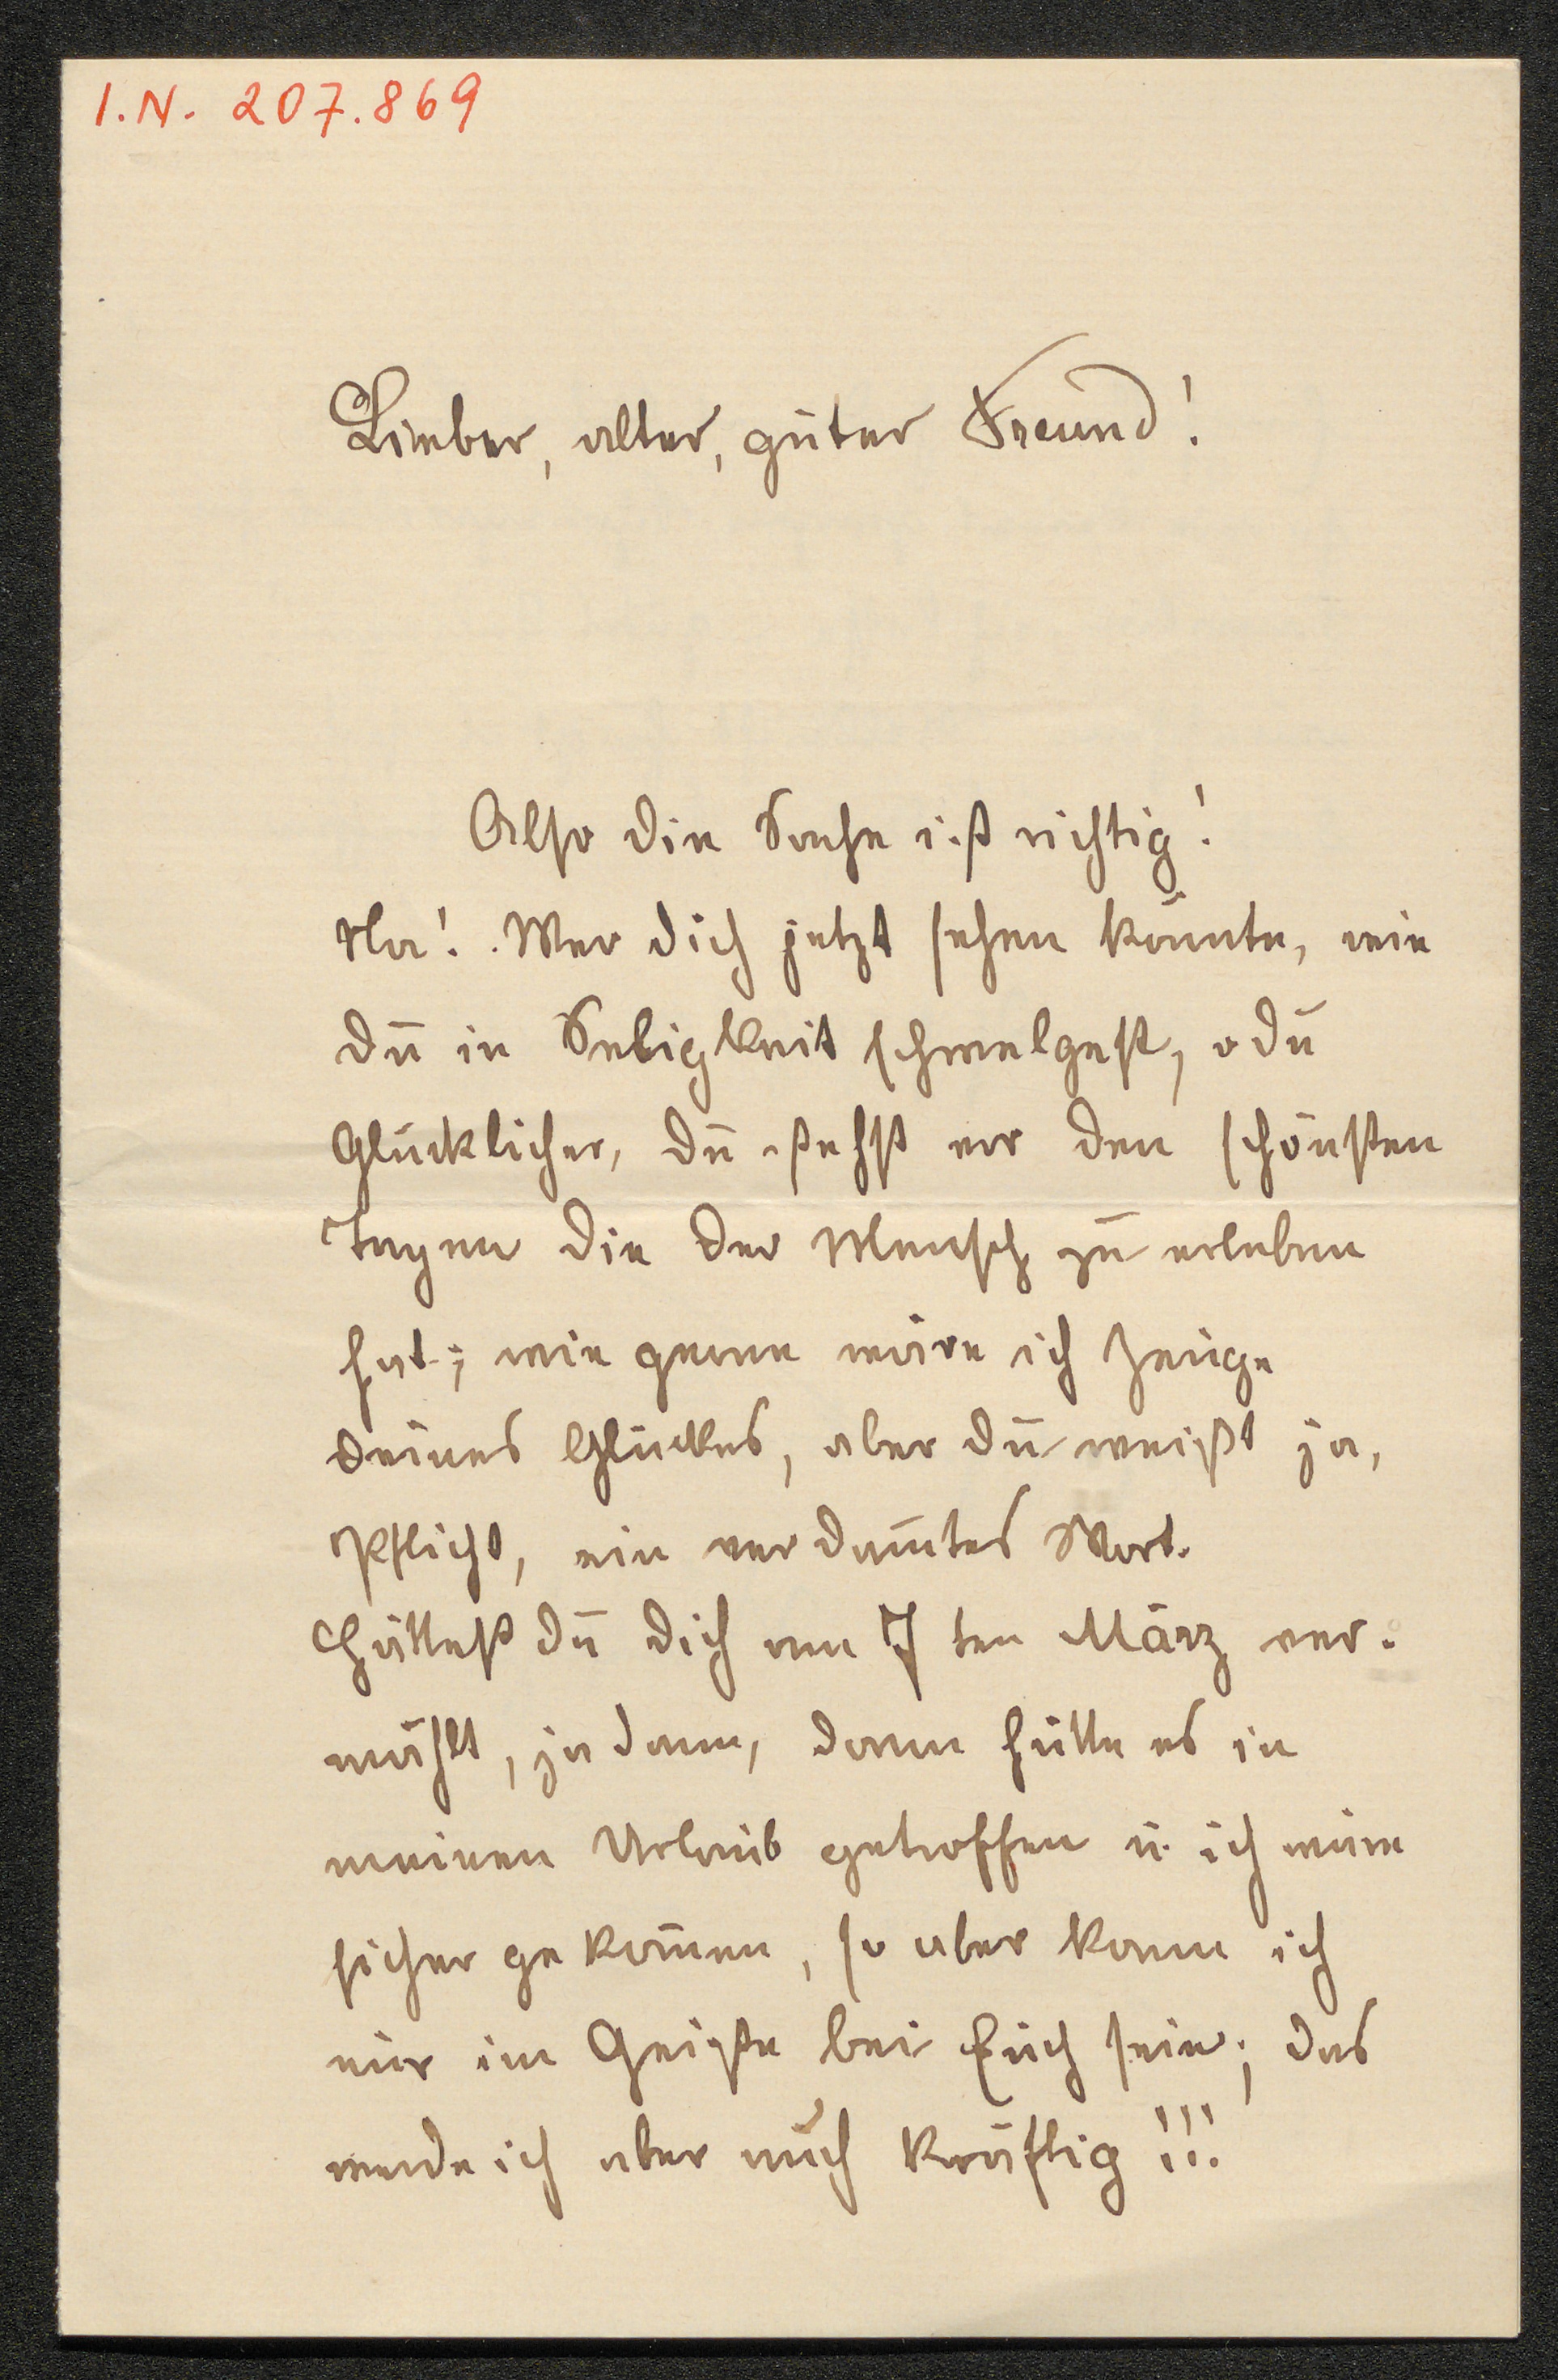 I.N. 207.869
Lieber, alter, guter Freund!
Also die Sache ist richtig!
Na! Wer dich jetzt sehen könnte, wie
du in Seligkeit schwelgest, o du
Glücklicher, du stehst vor den schönsten
Tagen die der Mensch zu erleben
hat; wie gerne wäre ich Zeuge
deines Glückes, aber du weißt ja,
Pflicht, ein verdam̅tes Wort.
Hättest du dich am 7ten März ver-
mählt, ja dann, dann hätte es in
meinen Urlaub getroffen u. ich wäre
sicher gekom̅en, so aber kann ich
nur im Geiste bei Euch sein; das
werde ich aber auch kräftig!!!